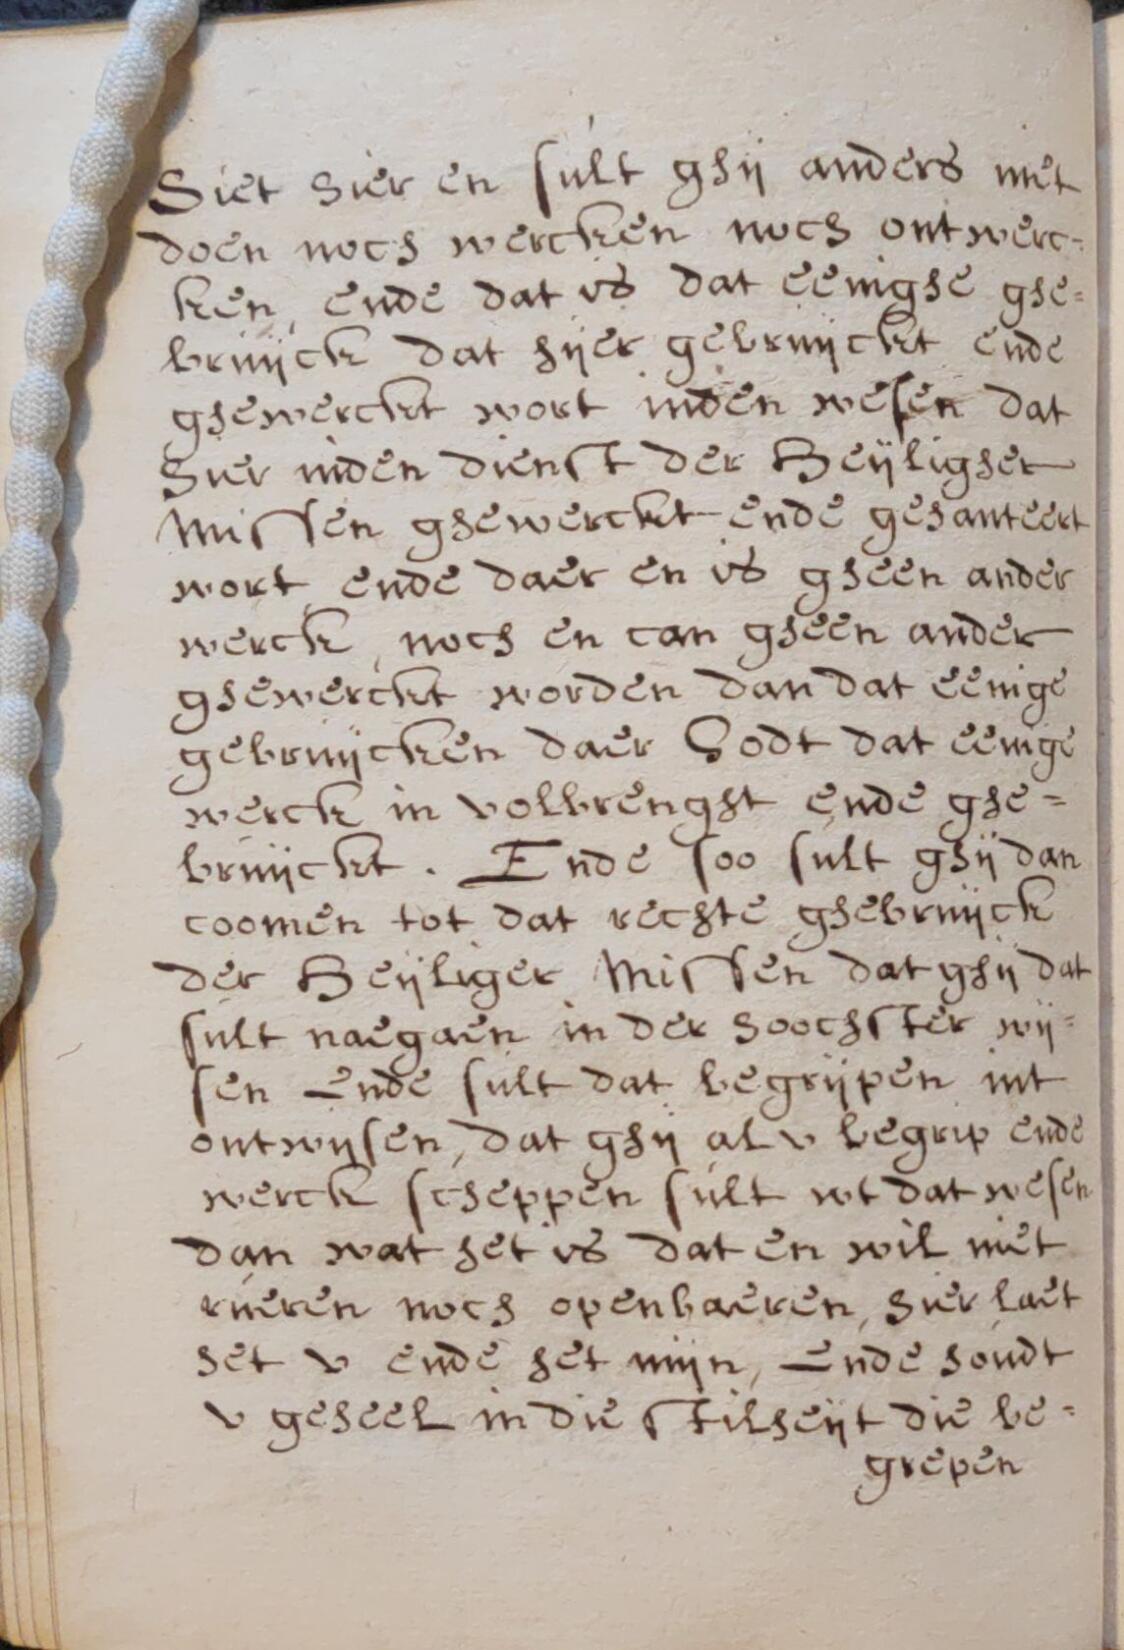 Siet hier en sult ghij anders niet
doen noch wercken noch ontwerc=
ken, ende dat is dat eenighe ghe=
bruijck dat hijer gebruijckt ende
ghewerckt wort inden wesen dat
hier inden dienst der Heijligher
Missen ghewerckt ende gehanteert
wort, ende daer en is gheen ander
werck, noch en can gheen ander
ghewerckt worden dan dat eenige
gebruijcken daer Godt dat eenige
werck in volbrenght ende ghe=
bruijckt. Ende soo sult ghij dan
coomen tot dat rechte ghebruijck
der Heijliger Missen dat ghij dat
sult naegaen in der hoochster wij=
sen Ende sult dat begrijpen int
ontwijsen, dat ghij al v begrip ende
werck scheppen sult wt dat wesen
dan wat het is dat en wil niet
rueren noch openbaeren, hier laet
het v ende het mijn, Ende houdt
v geheel in die stilheijt die be=
grepen